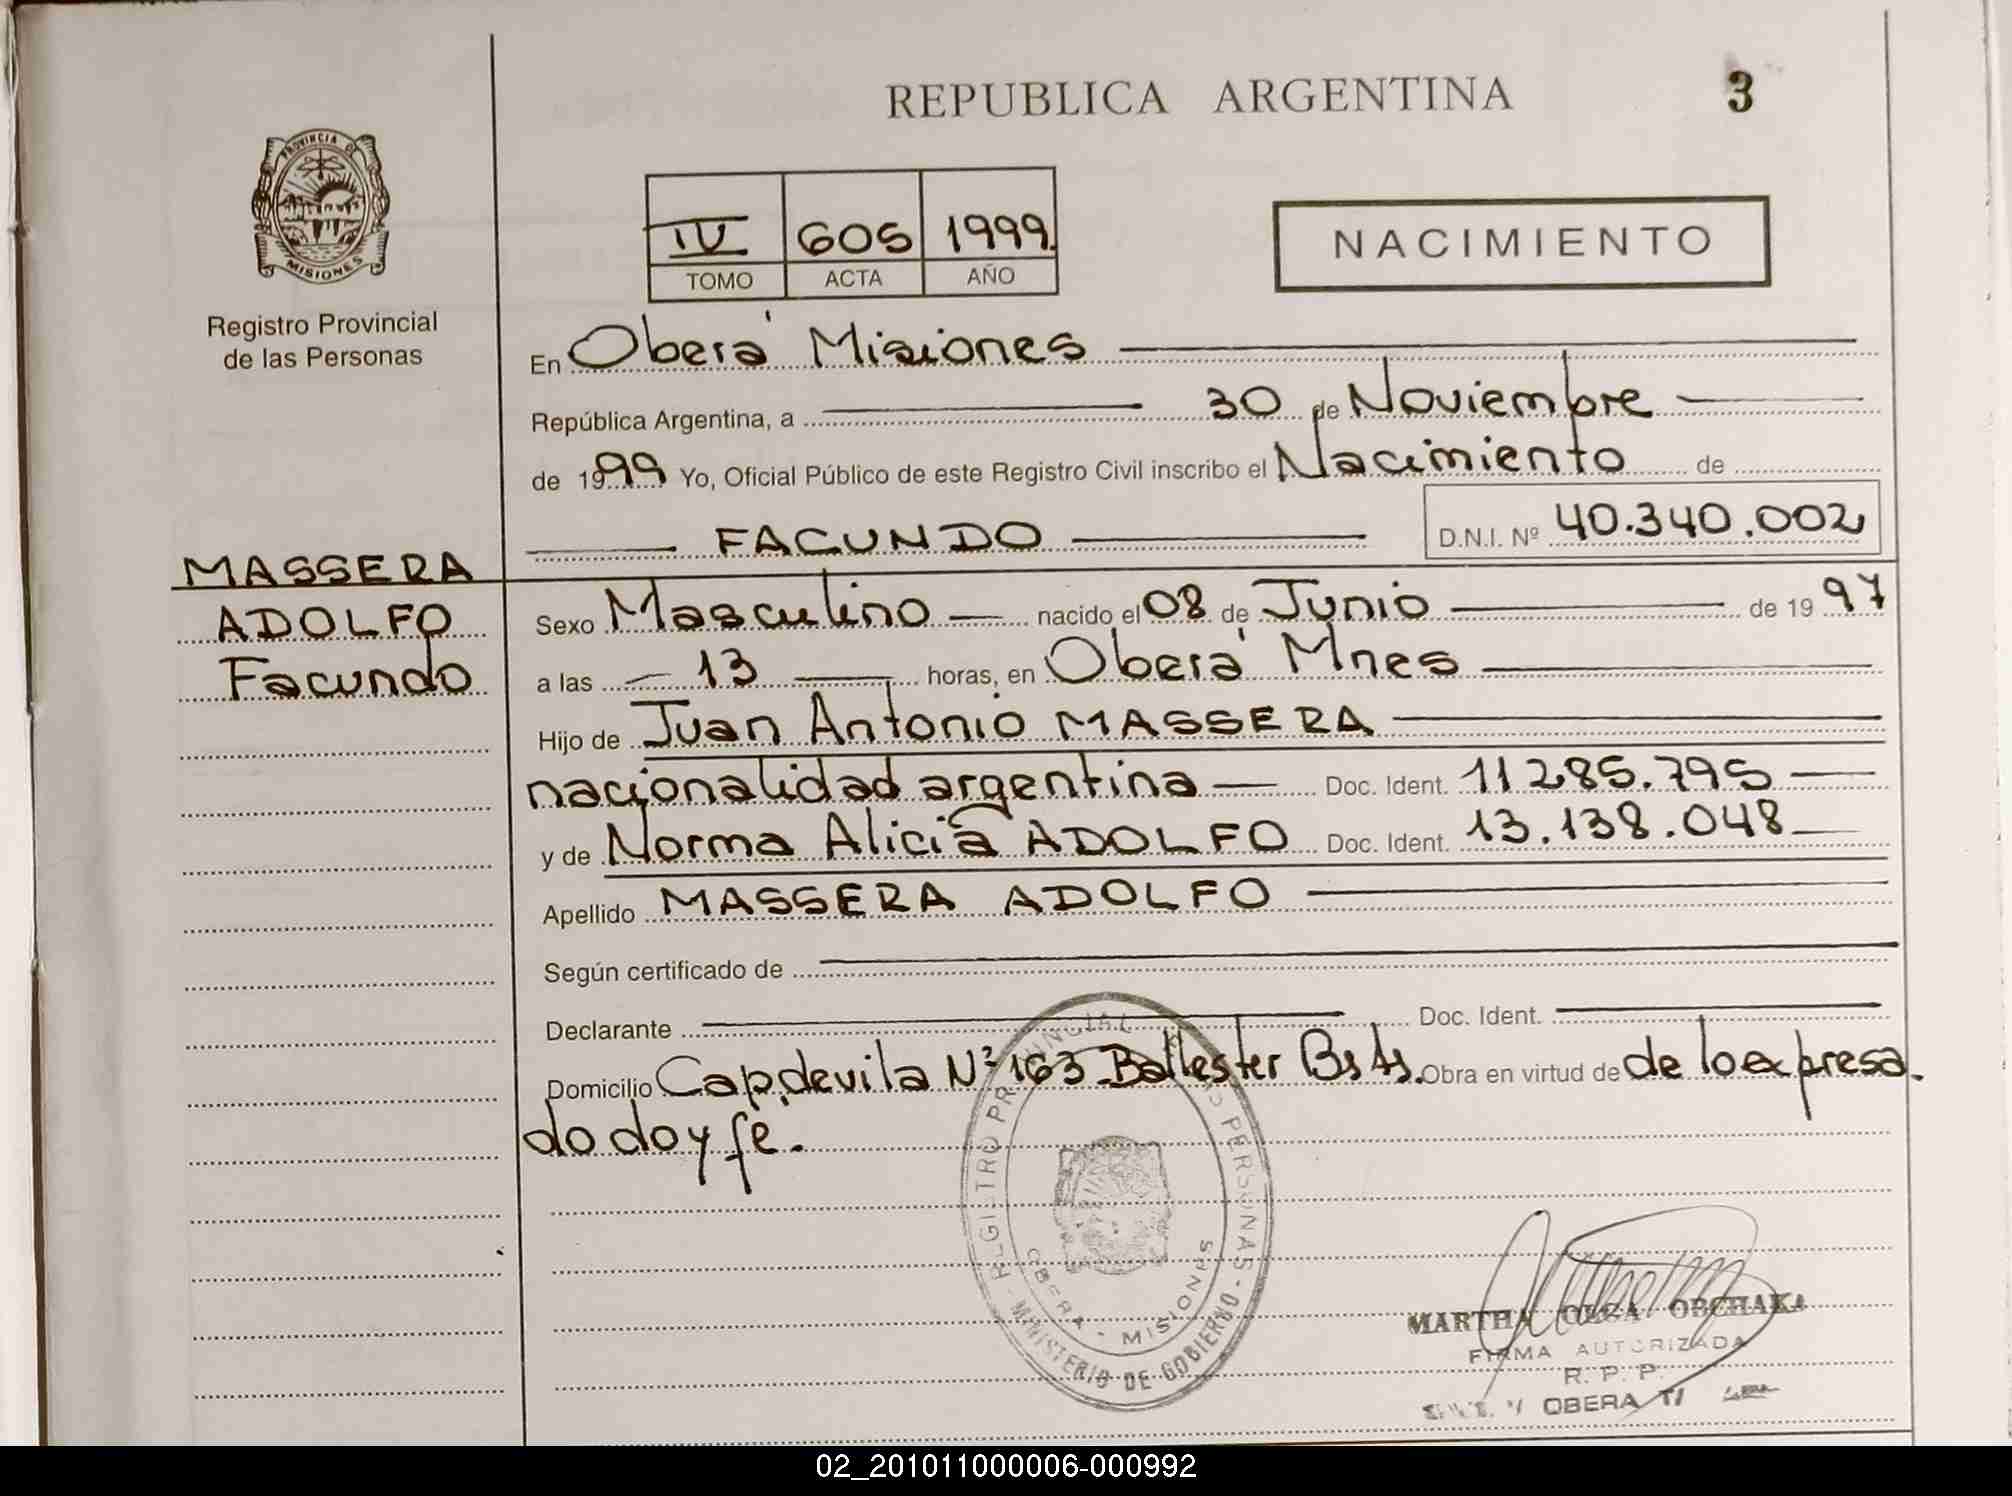 REPUBLICA ARGENTINA
3
PROVINCIA DE
MISIONES
Registro Provincial
de las Personas
IV 605 1999.
TOMO ACTA AÑO
NACIMIENTO
En Oberá Misiones
República Argentina, a 30 de Noviembre
de 1999 Yo, Oficial Público de este Registro Civil inscribo el Nacimiento de
FACUNDO D.N.I. Nº 40.340.002
MASSERA
ADOLFO
Facundo
Sexo Masculino nacido el 08 de Junio de 1997
a las 13 horas, en Oberá Mnes
Hijo de Juan Antonio MASSERA
nacionalidad argentina Doc. Ident. 11285.795
y de Norma Alicia ADOLFO Doc. Ident. 13.138.048
Apellido MASSERA ADOLFO
Según certificado de
Declarante Doc. Ident.
Domicilio Capdevila Nº 163 Ballester Bs As. Obra en virtud de de lo expresa
do doy fé.
REGISTRO PROVINCIAL PERSONAS - MINISTERIO DE GOBIERNO -
OBERA - MISIONES
MARTHA OLGA OBCHAKA
FIRMA AUTORIZADA
R. P. P.
OBERA
02_201011000006-000992